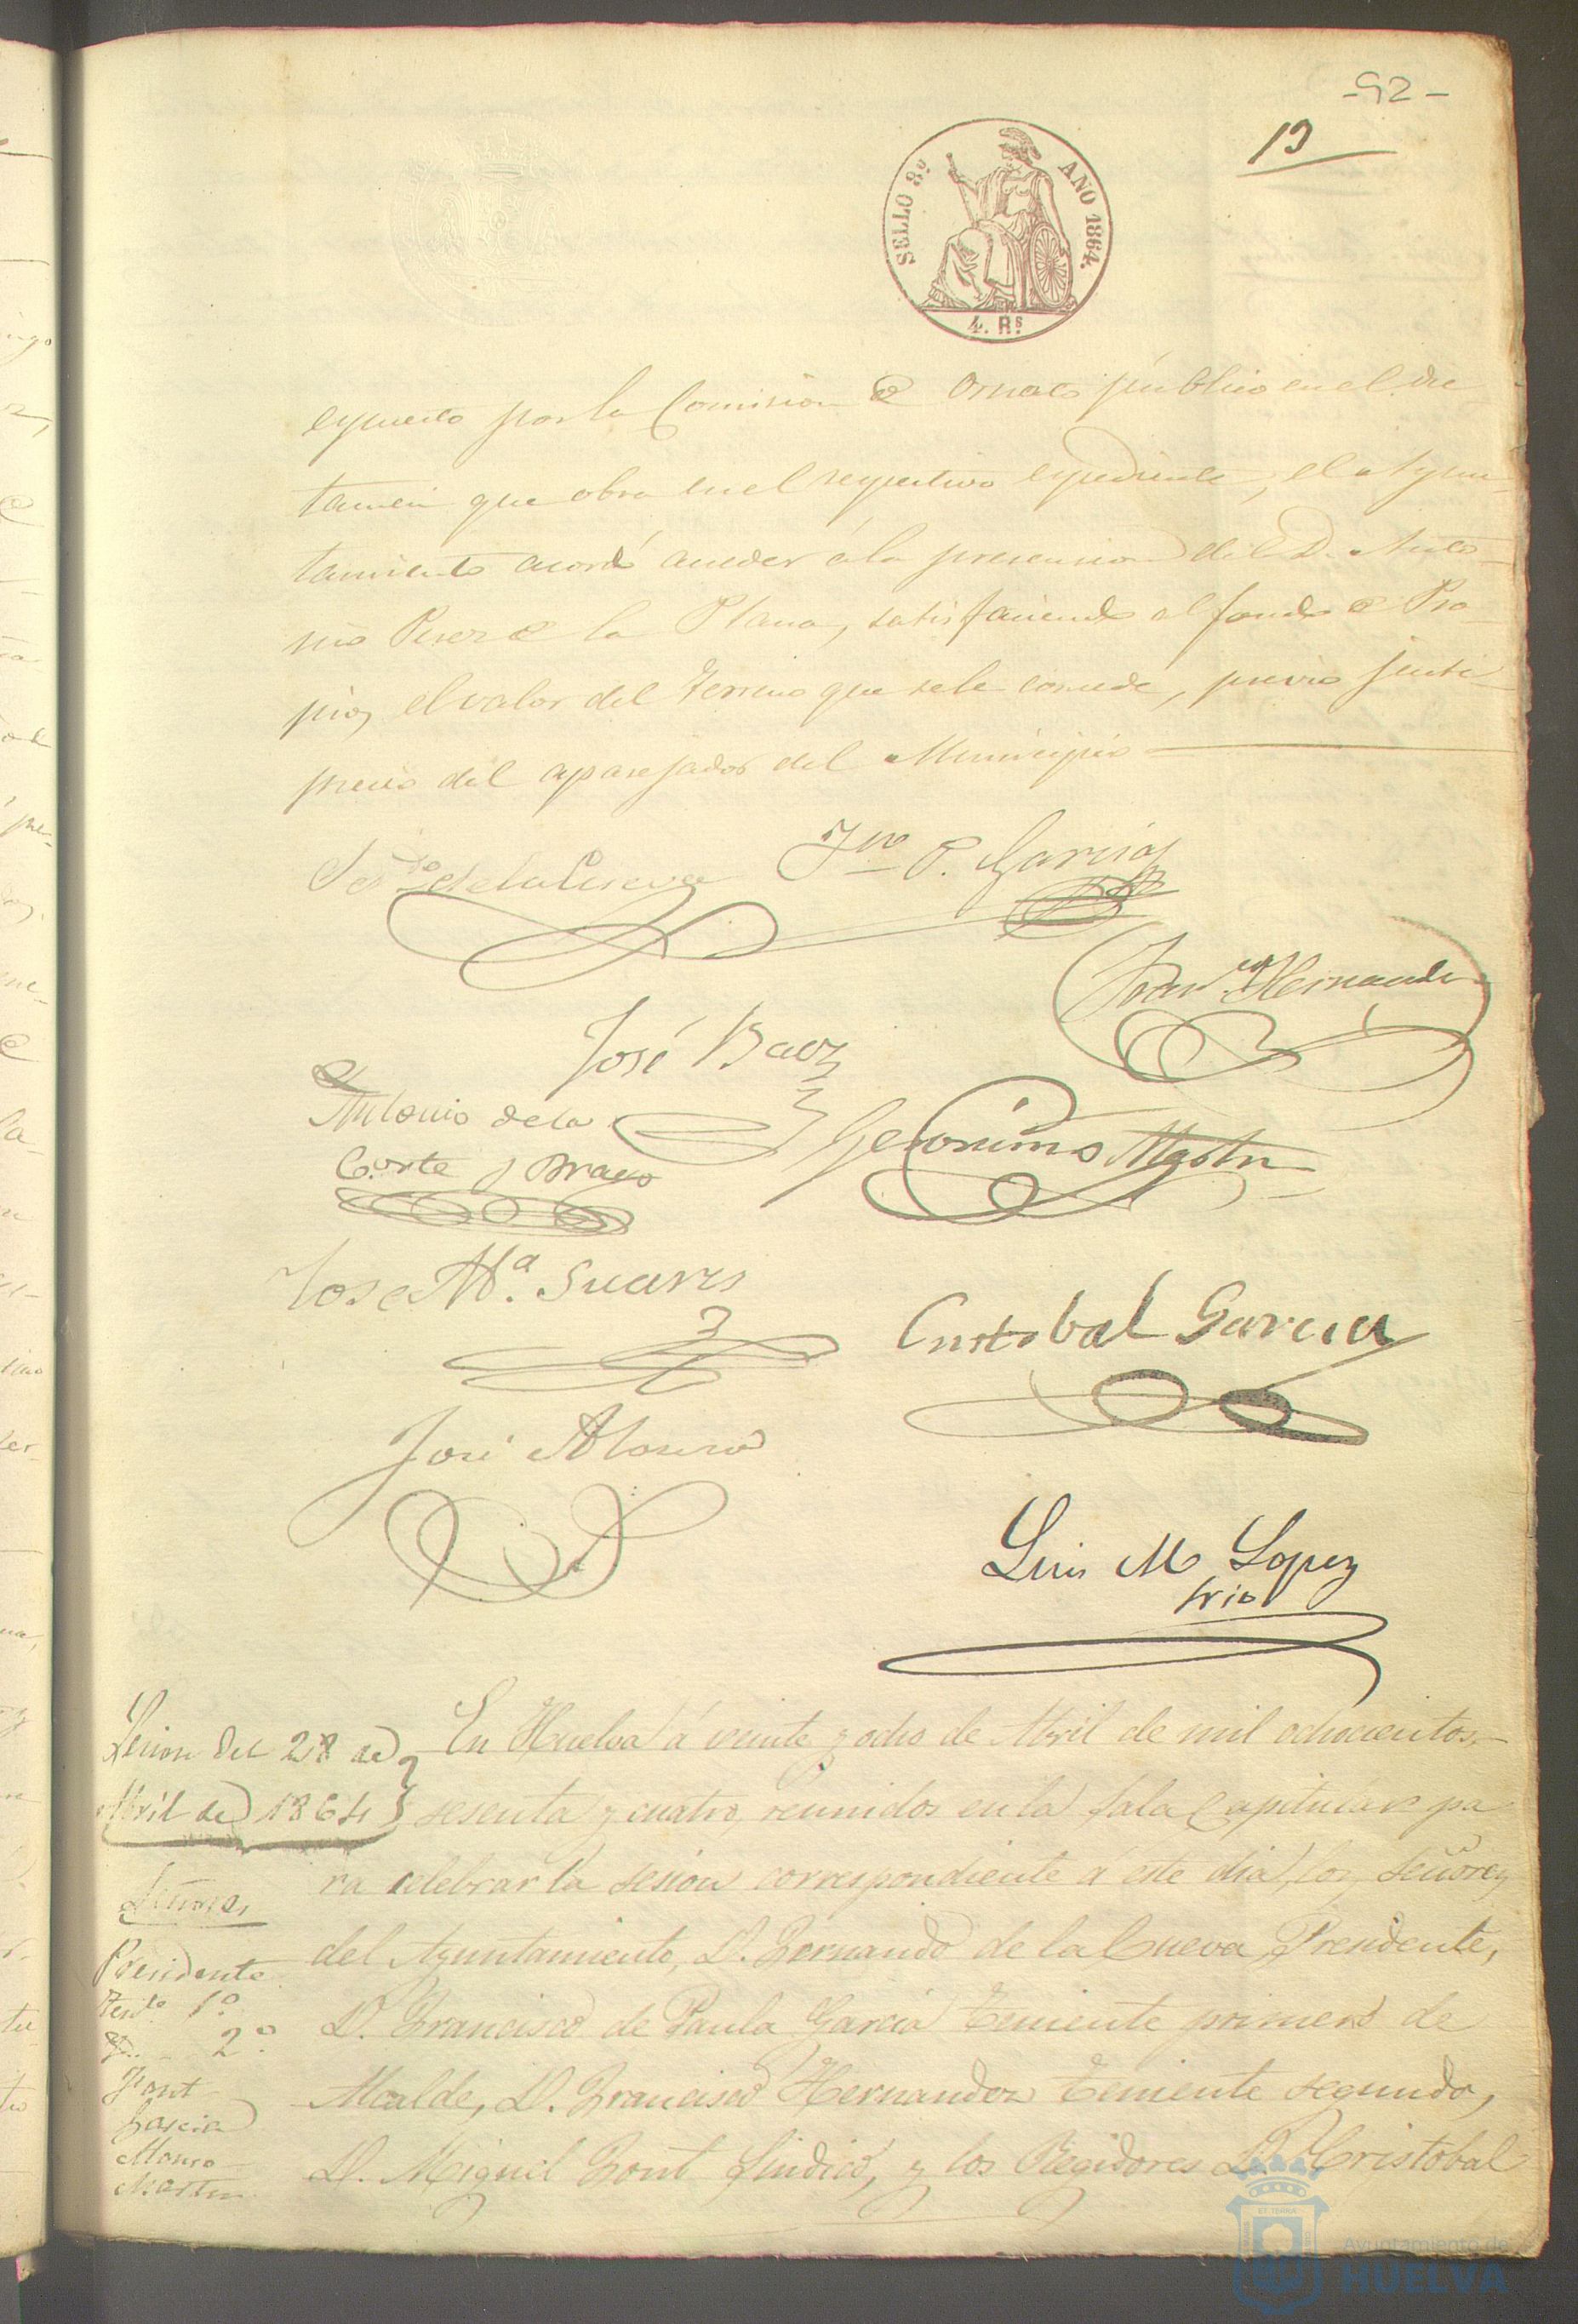 -92-
19
SELLO 8º AÑO 1864.
4. Rˢ
espuesto por la Comision de Ornato publico en el dic
tamen que obra en el respectivo espediente, el Ayun-
tamiento acordó acceder á la pretension del D. Anto-
nio Perez de la Plana, satisfaciendo al fondo de Pro-
pios el valor del terreno que se le concede, previo justi-
precio del aparejador del Municipio
Ferᵈᵒ de la Cueva
Fᶜᵒ P. Garcia
Franᶜᵒ Hernandez
José Baez
Antonio de la
Corte y Bravo
Geronimo Martin
Jose Mª. Suares
Cristobal Garcia
José Alonso
Luis M Lopez
Srio
Sesion del 28 de
Abril de 1864
En Huelva á veinte y ocho de Abril de mil ochocientos
sesenta y cuatro, reunidos en la Sala Capitular pa
ra celebrar la sesion correspondiente á este dia, los Señores
del Ayuntamiento, D. Fernando de la Cueva, Presidente,
D. Francisco de Paula Garcia Teniente primero de
Alcalde, D. Francisco Hernandez Teniente segundo,
D. Miguel Font Sindico, y los Regidores D. Cristobal
Señores
Presidente
Tenᵗᵉ 1º
2º
Font
Garcia
Alonso
Martin
Ayuntamiento de
HUELVA